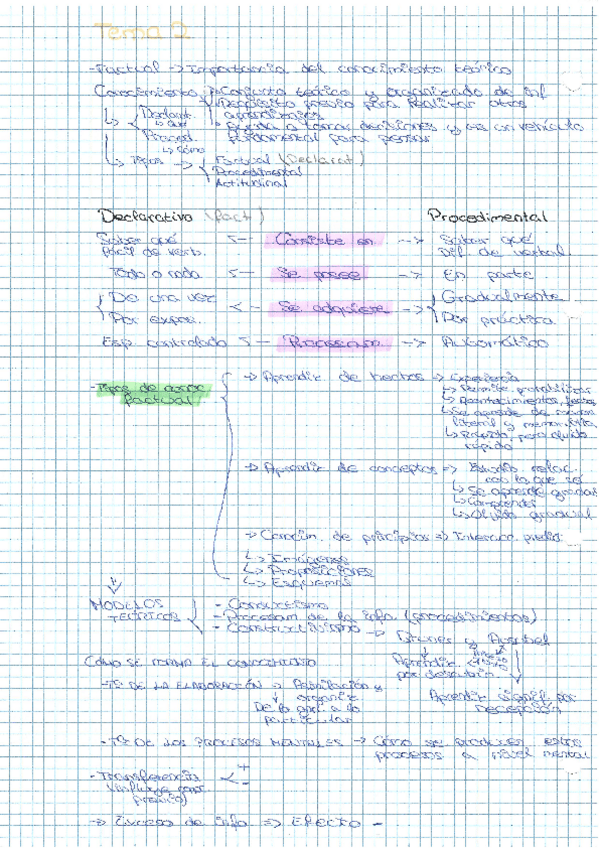 Tema 2
-Factual -> Importancia del conocimiento teórico
Conocimiento -> Conjunto teórico y organizado de inf.
-> Depósito previo para realizar otros aprendizajes
-> Ayuda a tomar decisiones y es un vehículo fundamental para pensar
↳ Declarat.
↳ Qué
Proced.
↳ Cómo
↳ Tipos -> Factual (Declarat)
Procedimental
Actitudinal
Declarativo (fact) Procedimental
Saber qué <- Consiste en -> Saber qué
fácil de verb. Dif. de verbal.
Todo o nada <- Se posee -> En parte
De una vez <- Se adquiere -> Gradualmente
Por expos. Por práctica
Esp. controlado <- Procesam. -> Automático
-Tipos de conoc. factual
-> Aprendiz. de hechos -> Experiencia
↳ Permite
↳ Acontecimientos,
↳ Se aprende de manera literal y
↳ Rápido, pero olvido rápido
-> Aprendiz. de conceptos -> relac. con lo que sé
↳ Se aprende gradual
↳ Comprende
↳ Olvido gradual
-> Conocim. de principios =>
↳ Imágenes
↳ Proposiciones
↳ Esquemas
MODELOS TEÓRICOS
- Conductismo
- Procesam. de la info. (procedimientos)
- Constructivismo -> Bruner y Ausubel
Aprendiz. por descubrim.
Aprendiz. signif. por recepción
CÓMO SE FORMA EL CONOCIMIENTO
-Tª DE LA ELABORACIÓN -> Asimilación y organiz.
De lo gral a lo particular
-Tª DE LOS PROCESOS MENTALES -> Cómo se producen estos procesos a nivel mental
-Transferencia + -
(influye con. previo)
-> Exceso de info. => Efecto -